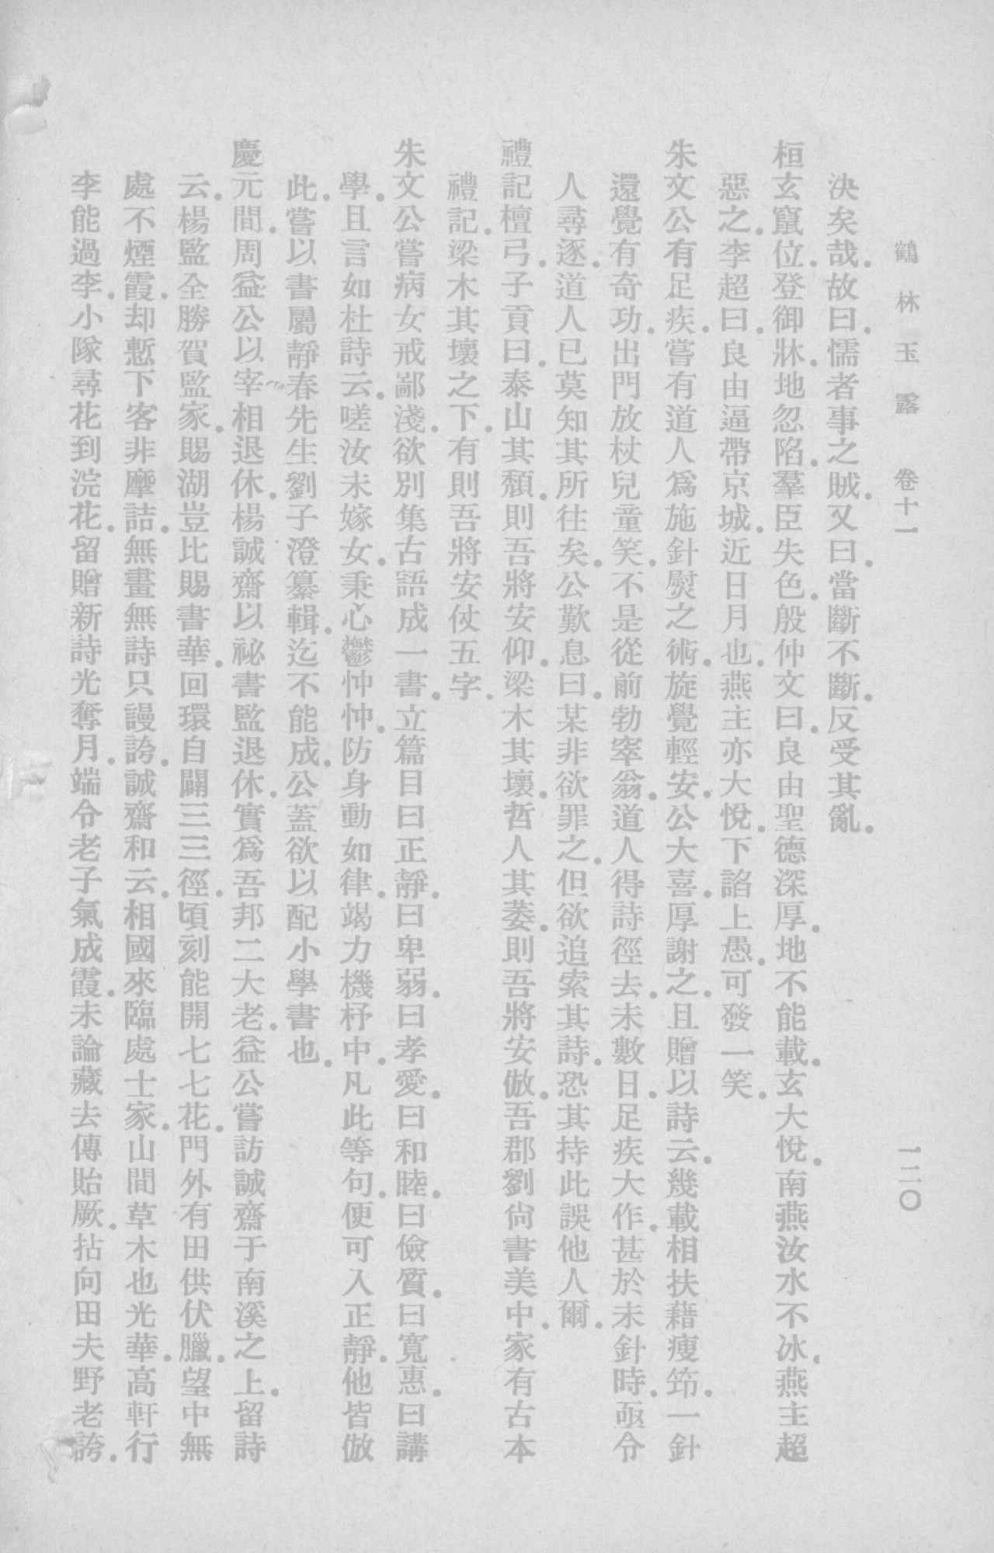 鶴林玉露　卷十一　一二〇
決矣哉。故曰。懦者事之賊。又曰。當斷不斷。反受其亂。
桓玄竄位。登御牀。地忽陷。羣臣失色。殷仲文曰。良由聖德深厚。地不能載。玄大悅。南燕汝水不冰。燕主超
惡之。李超曰。良由逼帶京城。近日月也。燕主亦大悅。下諂上愚。可發一笑。
朱文公有足疾。嘗有道人爲施針熨之術。旋覺輕安。公大喜。厚謝之。且贈以詩云。幾載相扶藉瘦筇。一針
還覺有奇功。出門放杖兒童笑。不是從前勃窣翁。道人得詩徑去。未數日。足疾大作。甚於未針時。亟令
人尋逐。道人已莫知其所往矣。公歎息曰。某非欲罪之。但欲追索其詩。恐其持此誤他人爾。
禮記檀弓。子貢曰。泰山其頹。則吾將安仰。梁木其壞。哲人其萎。則吾將安倣。吾郡劉尙書美中。家有古本
禮記。梁木其壞之下。有則吾將安仗五字。
朱文公嘗病女戒鄙淺。欲別集古語成一書。立篇目曰正靜。曰卑弱。曰孝愛。曰和睦。曰儉質。曰寬惠。曰講
學。且言如杜詩云。嗟汝未嫁女。秉心鬱忡忡。防身動如律。竭力機杼中。凡此等句。便可入正靜。他皆倣
此。嘗以書屬靜春先生劉子澄纂輯。迄不能成。公蓋欲以配小學書也。
慶元間。周益公以宰相退休。楊誠齋以祕書監退休。實爲吾邦二大老。益公嘗訪誠齋于南溪之上。留詩
云。楊監全勝賀監家。賜湖豈比賜書華。回環自闢三三徑。頃刻能開七七花。門外有田供伏臘。望中無
處不煙霞。却慙下客非摩詰。無畫無詩只謾誇。誠齋和云。相國來臨處士家。山間草木也光華。高軒行
李能過李。小隊尋花到浣花。留贈新詩光奪月。端令老子氣成霞。未論藏去傳貽厥。拈向田夫野老誇。